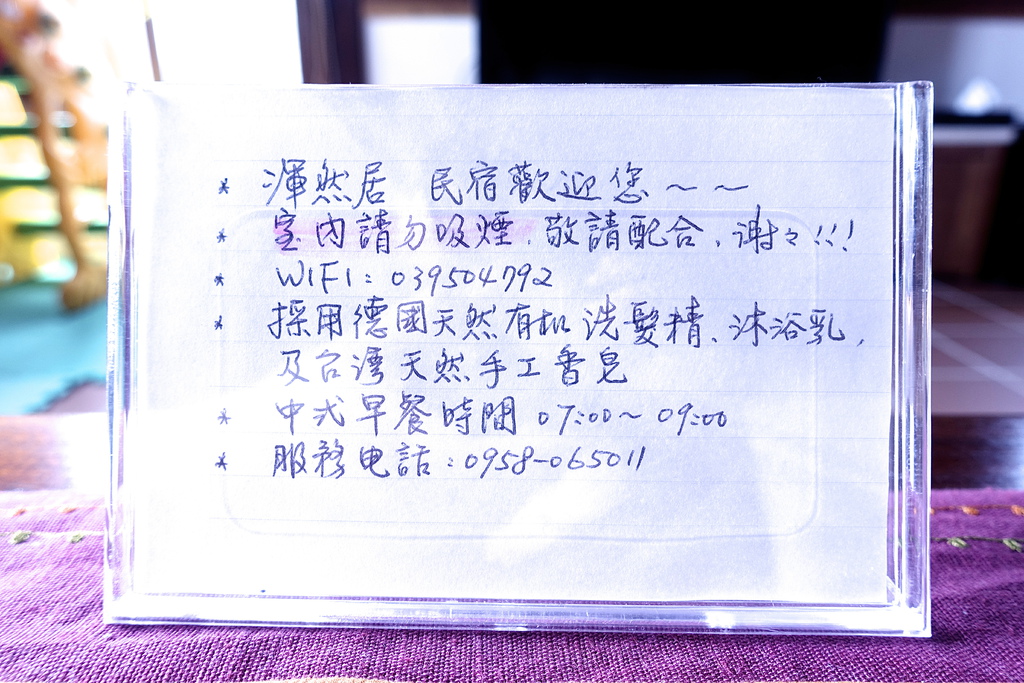 * 渾然居 民宿歡迎您～～
* 室內請勿吸煙、敬請配合、謝々!!!
* WIFI: 039504792
* 採用德國天然有机洗髮精、沐浴乳,
及台湾天然手工香皂
* 中式早餐時間 07:00~ 09:00
* 服務电話:0958-065011